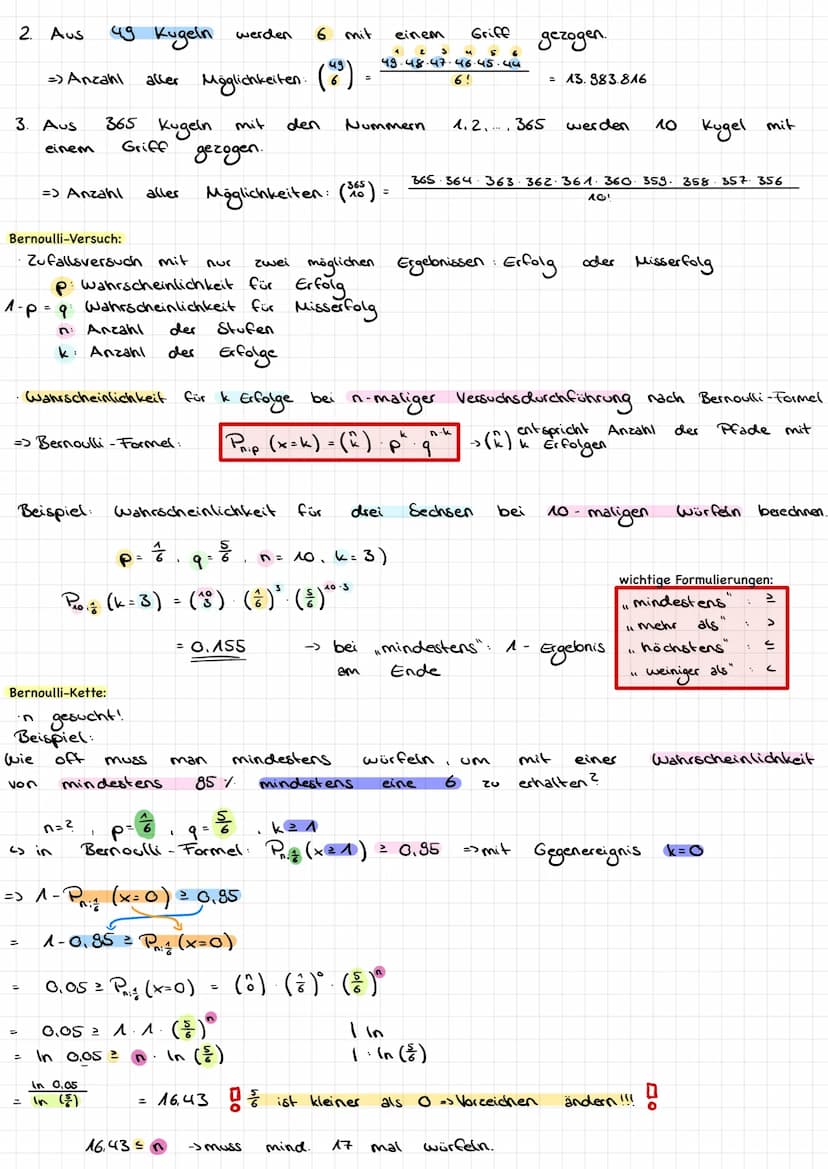 2. Aus 49 Kugeln werden 6 mit einem Griff gezogen.
1 2 3 4 5 6
=> Anzahl aller Möglichkeiten: (49 6) = 49·48·47·46·45·44 / 6! = 13.983.816
3. Aus 365 Kugeln mit den Nummern 1,2,...,365 werden 10 Kugel mit
einem Griff gezogen.
=> Anzahl aller Möglichkeiten: (365 10) = 365·364·363·362·361·360·359·358·357·356 / 10!
Bernoulli-Versuch:
· Zufallsversuch mit nur zwei möglichen Ergebnissen: Erfolg oder Misserfolg
p: Wahrscheinlichkeit für Erfolg
1-p = q: Wahrscheinlichkeit für Misserfolg
n: Anzahl der Stufen
k: Anzahl der Erfolge
· Wahrscheinlichkeit für k Erfolge bei n-maliger Versuchsdurchführung nach Bernoulli-Formel
=> Bernoulli-Formel: Pn;p (x=k) = (n k) · p^k · q^n-k → (n k) entspricht Anzahl der Pfade mit
k Erfolgen
Beispiel: Wahrscheinlichkeit für drei Sechsen bei 10-maligen Würfeln berechnen.
p = 1/6, q = 5/6, n = 10, k = 3)
P10;1/6 (k=3) = (10 3) · (1/6)^3 · (5/6)^10-3
= 0,155 → bei „mindestens": 1 - Ergebnis
am Ende
wichtige Formulierungen:
„mindestens" : ≥
„mehr als" : >
„höchstens" : ≤
„weiniger als" : <
Bernoulli-Kette:
·n gesucht!
Beispiel:
Wie oft muss man mindestens würfeln, um mit einer Wahrscheinlichkeit
von mindestens 95% mindestens eine 6 zu erhalten?
n=?, p=1/6, q=5/6, k≥1
↪ in Bernoulli-Formel: Pn;1/6 (x≥1) ≥ 0,95 => mit Gegenereignis k=0
=> 1-Pn;1/6 (x=0) ≥ 0,95
= 1-0,95 ≥ Pn;1/6 (x=0)
= 0,05 ≥ Pn;1/6 (x=0) = (n 0) · (1/6)^0 · (5/6)^n
= 0,05 ≥ 1·1·(5/6)^n | ln
= ln 0,05 ≥ n · ln (5/6) | : ln (5/6)
= ln 0,05 / ln (5/6) = 16,43 ! 5/6 ist kleiner als 0 => Vorzeichen ändern!!! !
16,43 ≤ n → muss mind. 17 mal würfeln.